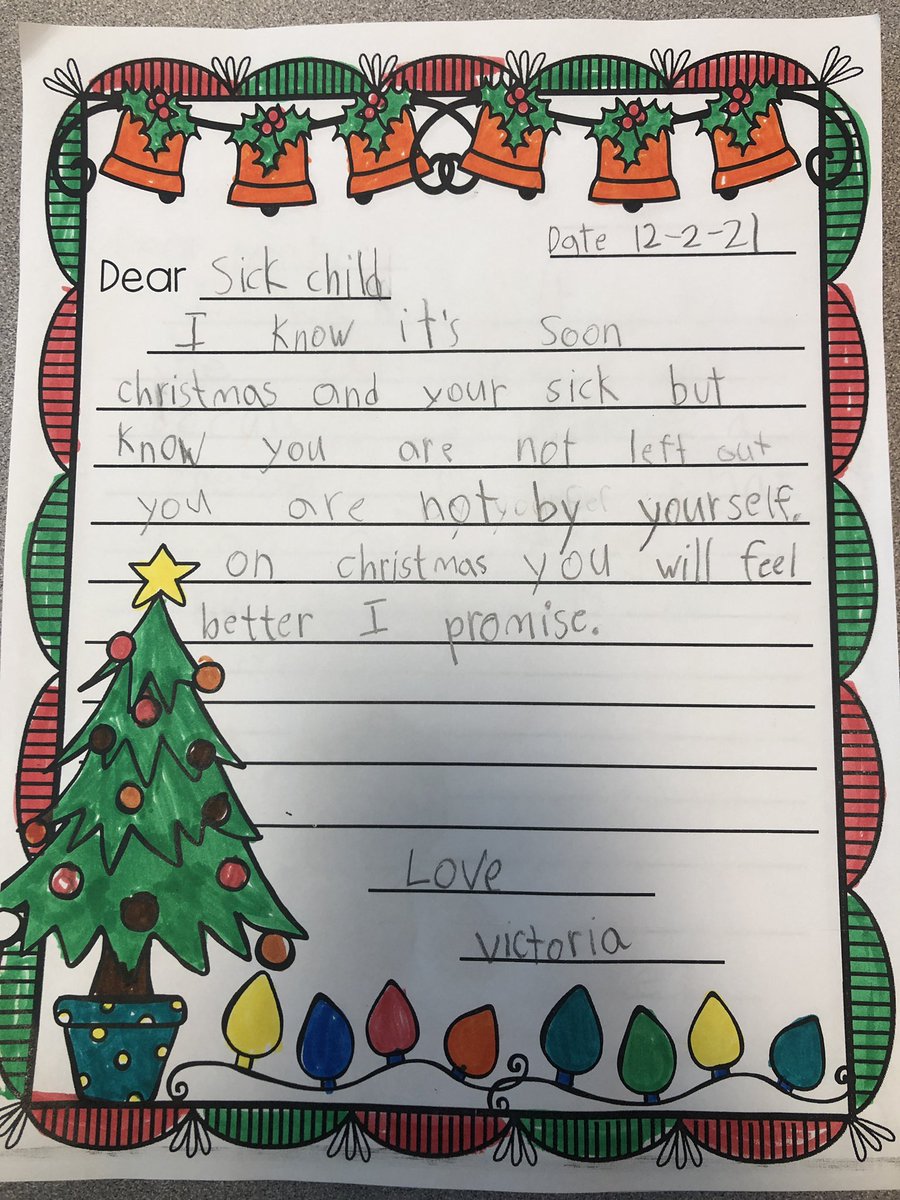 Date 12-2-21
Dear Sick child
I know it's soon
christmas and your sick but
know you are not left out
you are not by yourself.
on christmas you will feel
better I promise.
Love
victoria